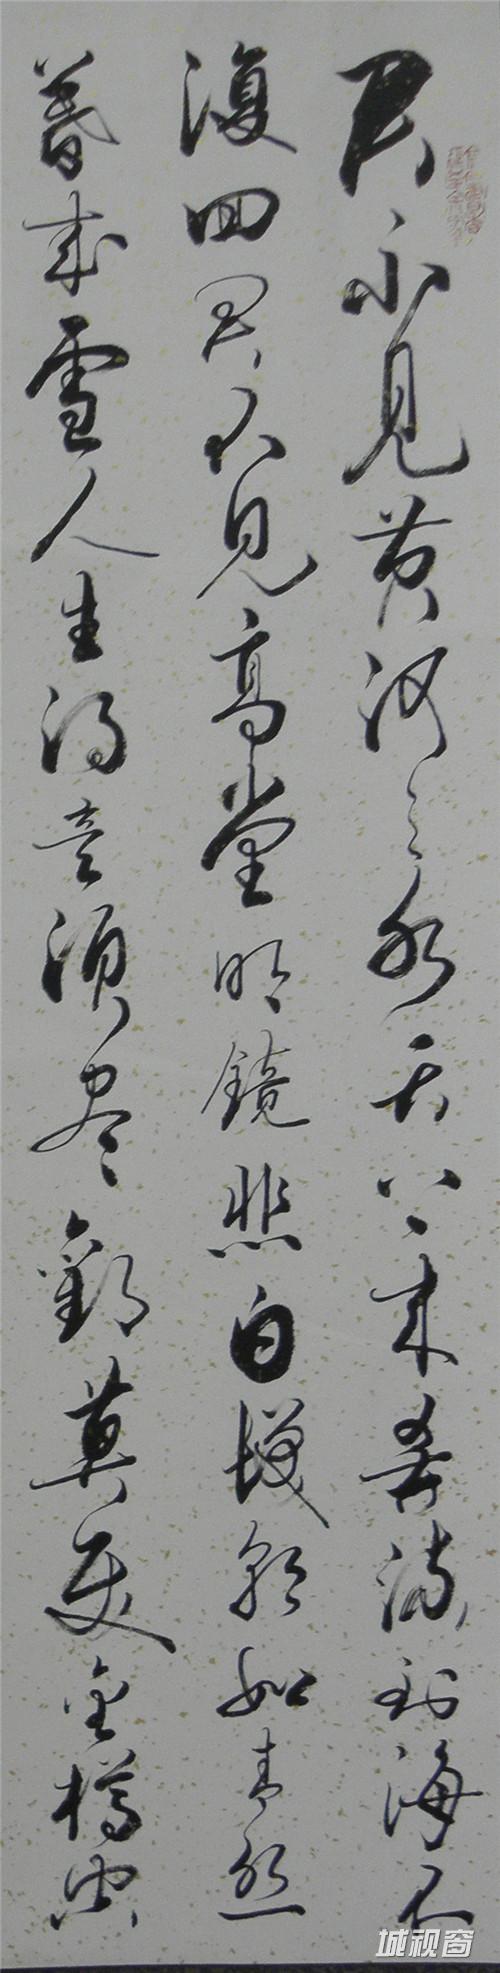 君不見黄河之水天上来奔流到海不
復回君不見高堂明鏡悲白髮朝如青絲
暮成雪人生得意須盡歡莫使金樽空
城视窗